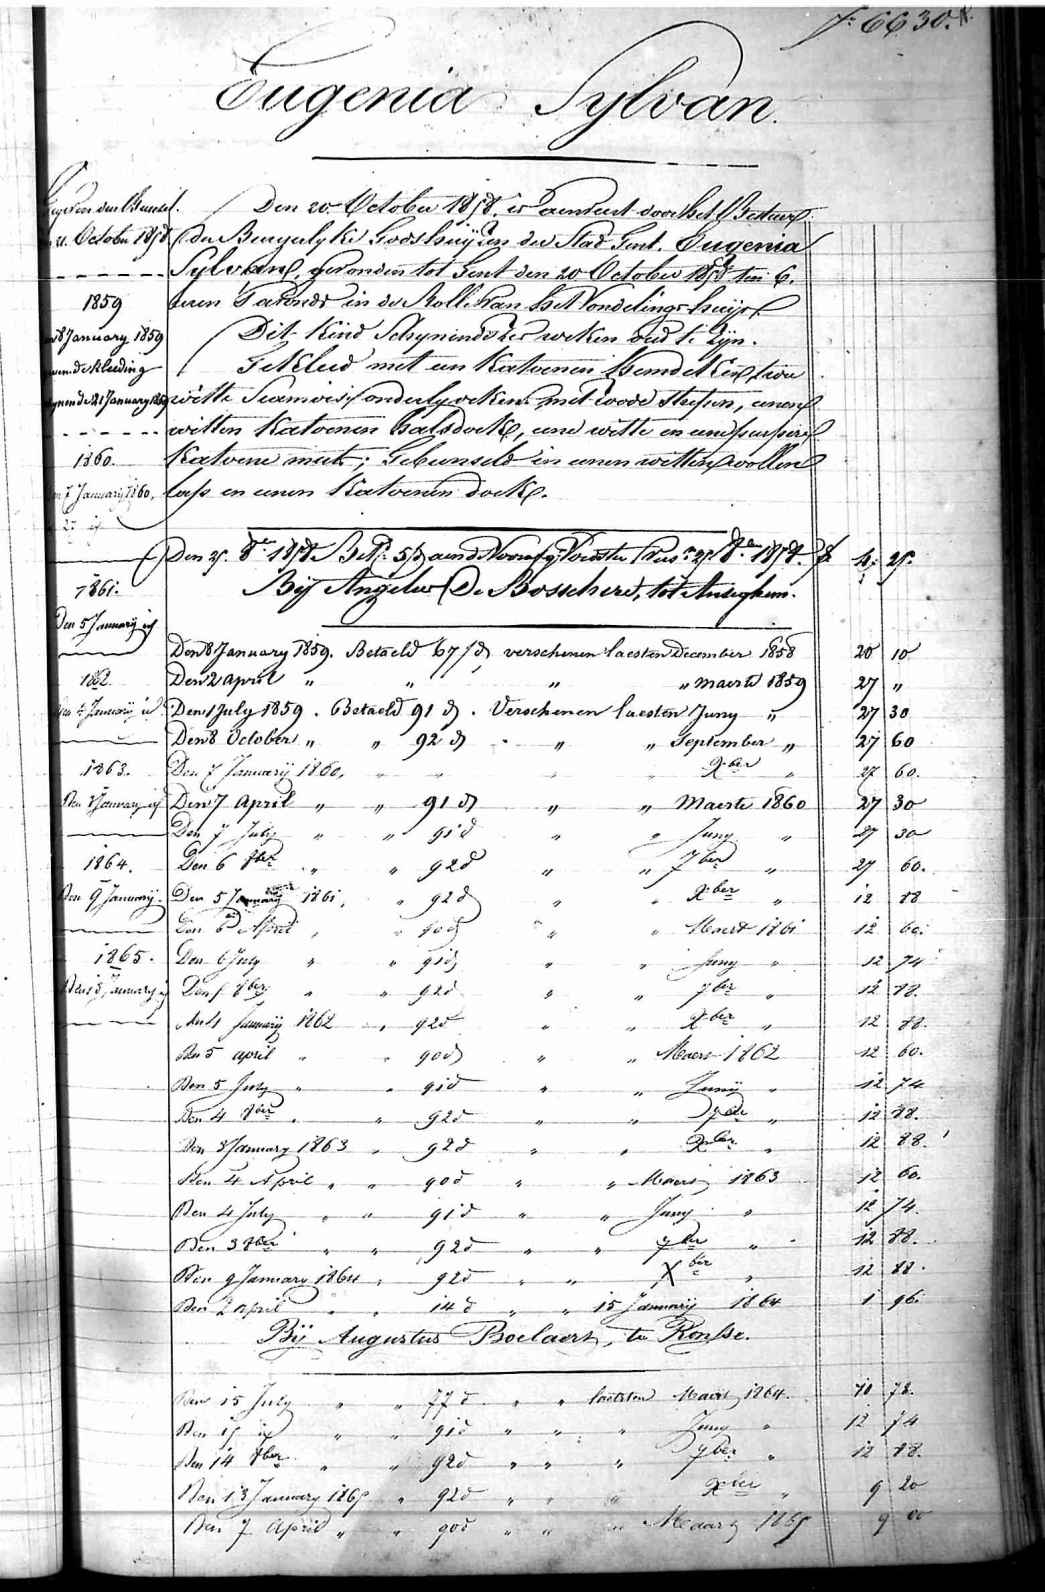 6630.
Eugenia Sylvan.
Den 20 October 1858, is aenveert door het Bestuur
der Burgerlyke Godshuyzen der Stad Gent. Eugenia
Sylvan, gevonden tot Gent den 20 October 1858 ten 6.
uren 's avonds in de Rolle van het Vondelings huys.
Dit Kind Schynende zes weken oud te zyn.
Gekleed met een Katoenen hemdeken, twee
witte Siamoisen onderlyvekens met roode streepen, eenen
witten Katoenen halsdoek, eene witte en eene purpere
Katoene muts; Gebunseld in eenen witten wollen
laps en eenen Katoenen doek.
October 1858
1859
8 January 1859
de kleeding
21 January 1859
1860.
7 January 1860.
27 id
1861.
Den 5 January id
1862
January id
1863.
Den 3 January id
1864.
Den 9 January.
1865.
January
Den 25 8er 1858 5 d aen de 27 8er 1858. 4 25
Bij Angelus De Bosschere, tot Anseghem.
Den 8 January 1859. Betaeld 67 d verschenen laesten December 1858 20 10
Den 2 April " " " " maerte 1859 27 "
Den 1 July 1859. Betaeld 91 d. Verschenen laesten Juny " 27 30
Den 8 October " " 92 d " " September " 27 60
Den 7 January 1860. " " " " Xber " 27 60.
Den 7 April " " 91 d " " Maerte 1860 27 30
Den 7 July " " 91 d " " Juny " 27 30
Den 6 8ber " " 92 d " " 7ber " 27 60.
Den 5 January 1861. " 92 d " " Xber " 12 88
Den 6 April " " 90 d " " Maert 1861 12 60.
Den 6 July " " 91 d " " Juny " 12 74
Den 5 8ber " " 92 d " " 7ber " 12 88.
Den 4 January 1862 " 92 d " " Xber " 12 88.
Den 5 april " " 90 d " " Maert 1862 12 60.
Den 5 July " " 91 d " " Juny " 12 74
Den 4 8ber " " 92 d " " 7ber " 12 88.
Den 3 January 1863 " 92 d " " Xber " 12 88.
Den 4 April " " 90 d " " Maert 1863 12 60.
Den 4 July " " 91 d " " Juny " 12 74.
Den 3 8ber " " 92 d " " 7ber " 12 88.
Den 9 January 1864 " 92 d " " Xber " 12 88.
Den 2 April " " 14 d " " 15 January 1864 1 96.
Bij Augustus Boelaert, te Ronsse.
Den 15 July " " 77 d " " laetsten Maert 1864. 10 78.
Den 15 id " " 91 d " " " Juny " 12 74
Den 14 8ber " " 92 d " " " 7ber " 12 88.
Den 13 January 1865 " 92 d " " " Xber " 9 20
Den 7 April " " 90 d " " " Maart 1865 9 00